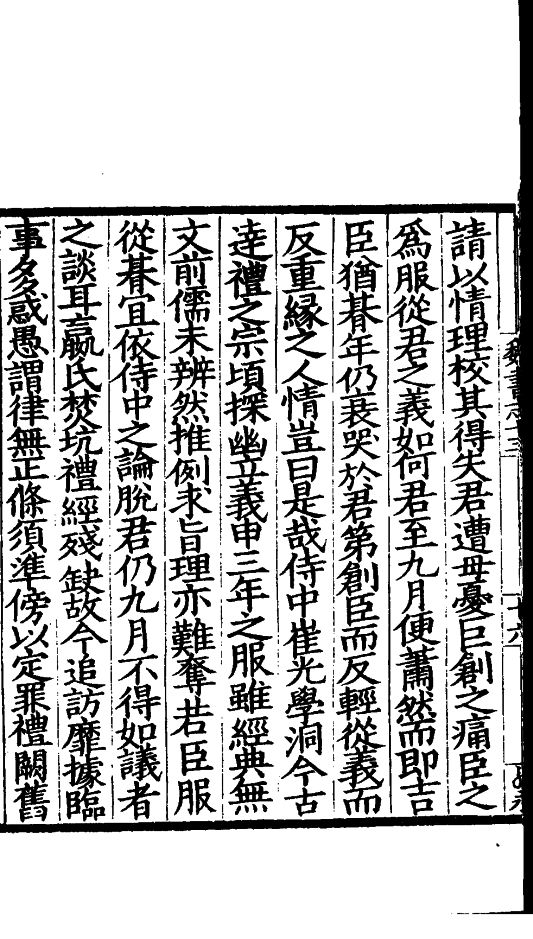 請以情理校其得失君遭母憂巨創之痛臣之
爲服從君之義如何君至九月便蕭然而即吉
臣猶朞年仍衰哭於君第創臣而反輕從義而
反重縁之人情豈曰是哉侍中崔光學洞今古
達禮之宗頃探幽立義申三年之服雖經典無
文前儒未辨然推例求旨理亦難奪若臣服
從朞宜依侍中之論脫君仍九月不得如議者
之談耳嬴氏焚坑禮經殘缺故今追訪靡據臨
事多惑愚謂律無正條須準傍以定罪禮闕舊